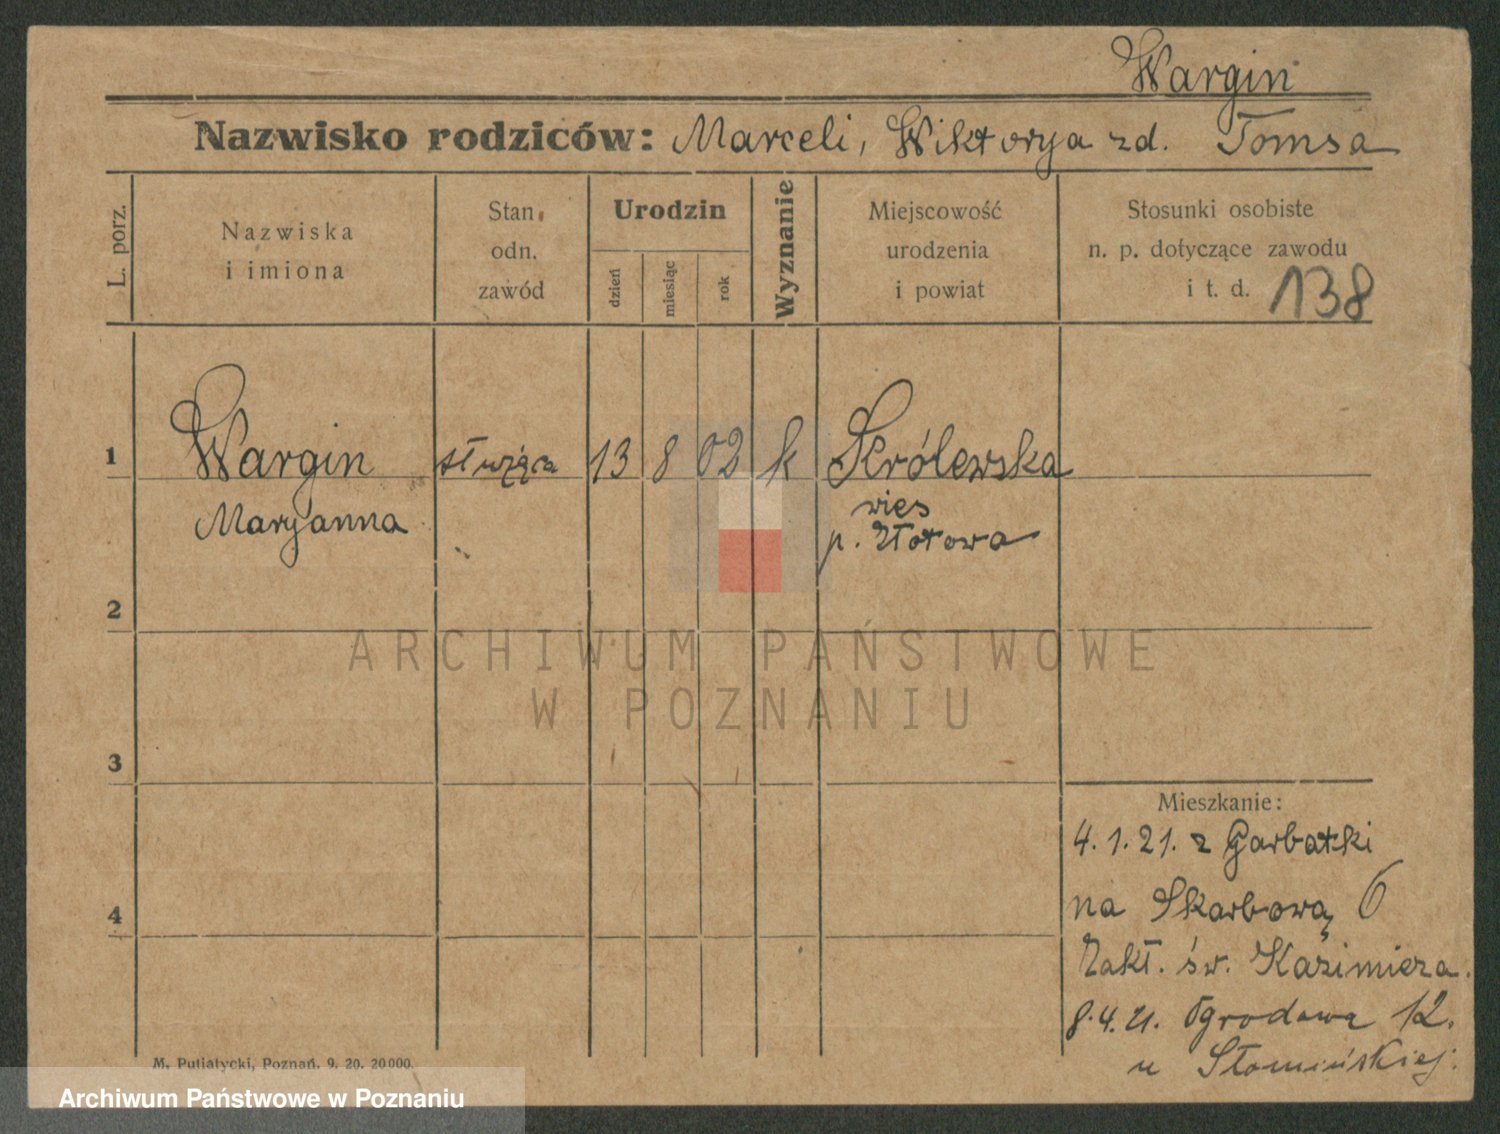 Wargin
Nazwisko rodziców: Marceli, Wiktorya zd. Tomsa
L. porz.
Nazwiska
i imiona
Stan
odn.
zawód
Urodzin
dzień
miesiąc
rok
Wyznanie
Miejscowość
urodzenia
i powiat
Stosunki osobiste
n. p. dotyczące zawodu
i t. d. 138
1 Wargin służąca 13 8 02 k Królewska
Maryanna
wies
p. Złotowa
2
3
4
ARCHIWUM PAŃSTWOWE
W POZNANIU
Mieszkanie:
4.1.21. z Garbatki
na Skarbową 6
Zakł. św. Kazimierza.
8.4.21. Ogrodowa 12.
u Słomińskiej.
M. Putiatycki, Poznań. 9. 20. 20000.
Archiwum Państwowe w Poznaniu